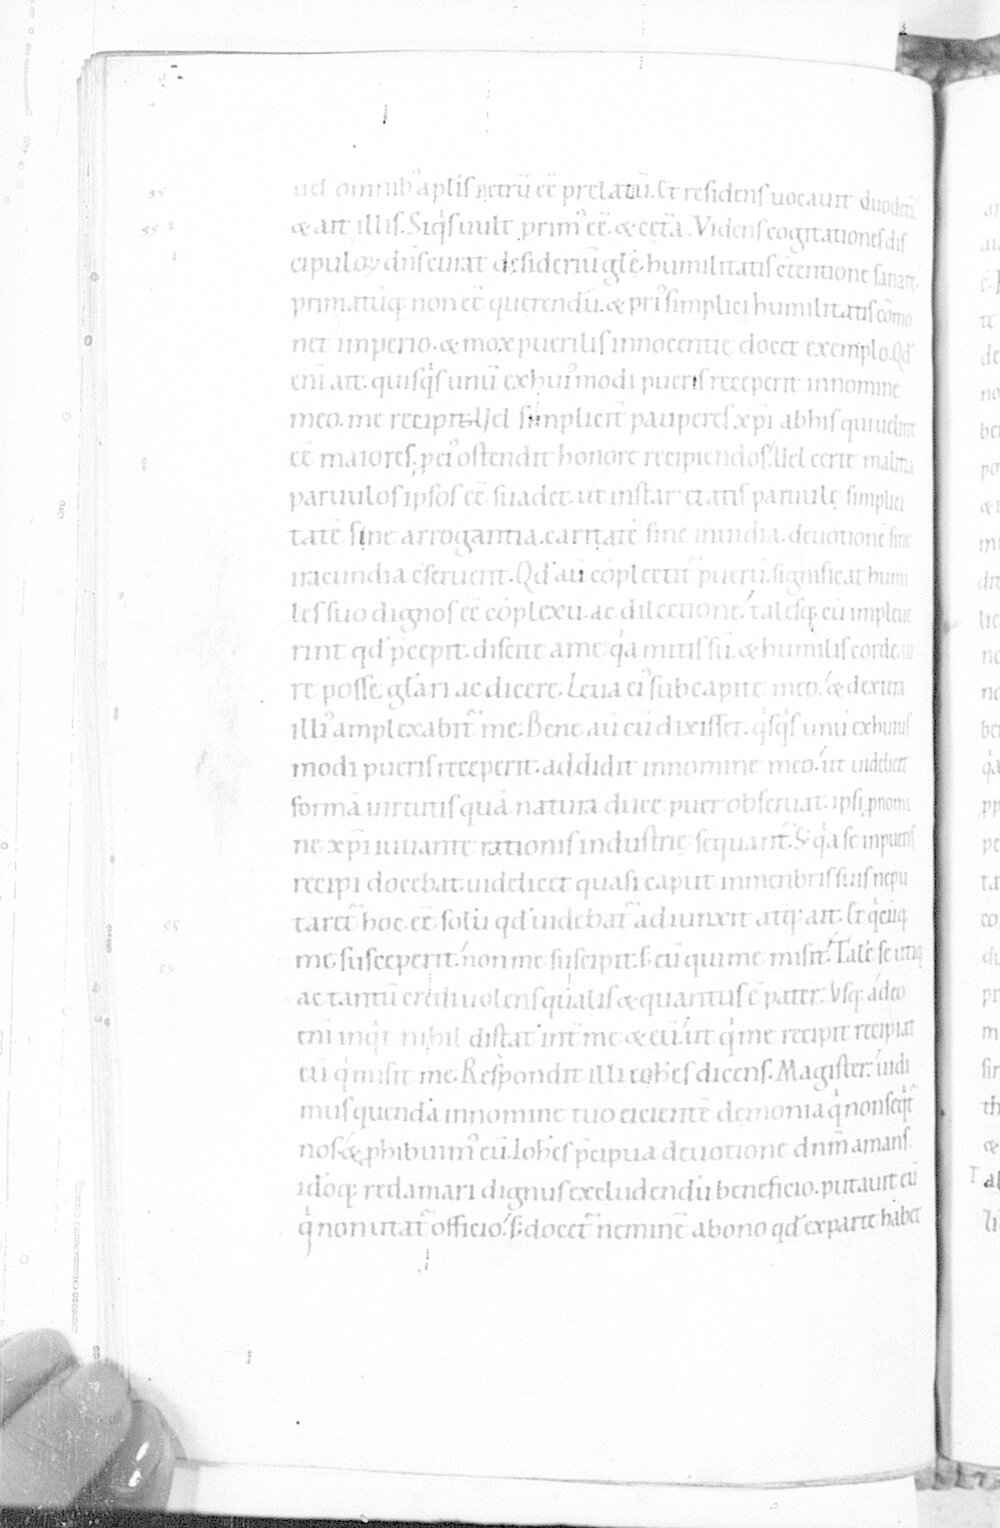 uel omnib' aplis petrū eē prelatū. Et residens uocauit duodecī.
& ait illis. Siq's uult prim' eē. & cet̄a. Videns cogitationes dis
cipuloꝝ dn̄s curat desideriū glē humilitatis c̄tentione sanare.
primatūq; non eē querendū. & pri' simplici humilitatis cōmo
net imperio. & mox puerilis innocentie docet exemplo. Qd'
eni ait. quisq's unū ex hui'modi pueris receperit innomine
meo. me recipit. Uel simplicit̄ pauperes xp̄i abhis qui uelint
eē maiores. p ei' ostendit honore recipiendos. Uel certe malitia
paruulos ipsos eē suadet. ut instar etatis paruule simplici
tatē sine arrogantia. caritatē sine inuidia. deuotionē sine
iracundia c̄seruent. Qd' aū cōplectit̄ puerū. significat humi
les suo dignos eē cōplexu. ac dilectione. talesq; cū impleue
rint qd' p̄cepit. discite ame q'a mitis sū. & humilis corde. iu
re posse gl'ari ac dicere. Leua ei' sub capite meo. & dextera
illi' amplexabit̄ me. Bene aū cū dixisset. q'sq's unū exhuius
modi pueris receperit. addidit innomine meo. ut uidelicet
formā uirtutis quā natura duce puer obseruat. ipsi ꝓ nomi
ne xp̄i iuuante rationis industrie sequant̄. S; q'a se inpueris
recipi docebat. uidelicet quasi caput inmenbris suis ne pu
taret̄ hoc eē solū qd' uidebat̄ adiunxit atq; ait. Et q'cūq;
me susceperit. non me suscipit. s; eū qui me misit. Talē se utiq;
ac tantū credi uolens qualis & quantus ē pater. Vsq; adeo
eni inq't nihil distat int̄ me & eū. ut q' me recipit recipiat
eū q' misit me. Respondit illi ioh̄es dicens. Magister. uidi
mus quendā innomine tuo eicientē demonia q' non seq't̄
nos. & phibuim' eū. Ioh̄es p̄cipua deuotione dnm̄ amans.
idoq; redamari dignus excludendū beneficio. putauit eū
q' non utat̄ officio. s; docet̄ neminē abono qd' ex parte habet